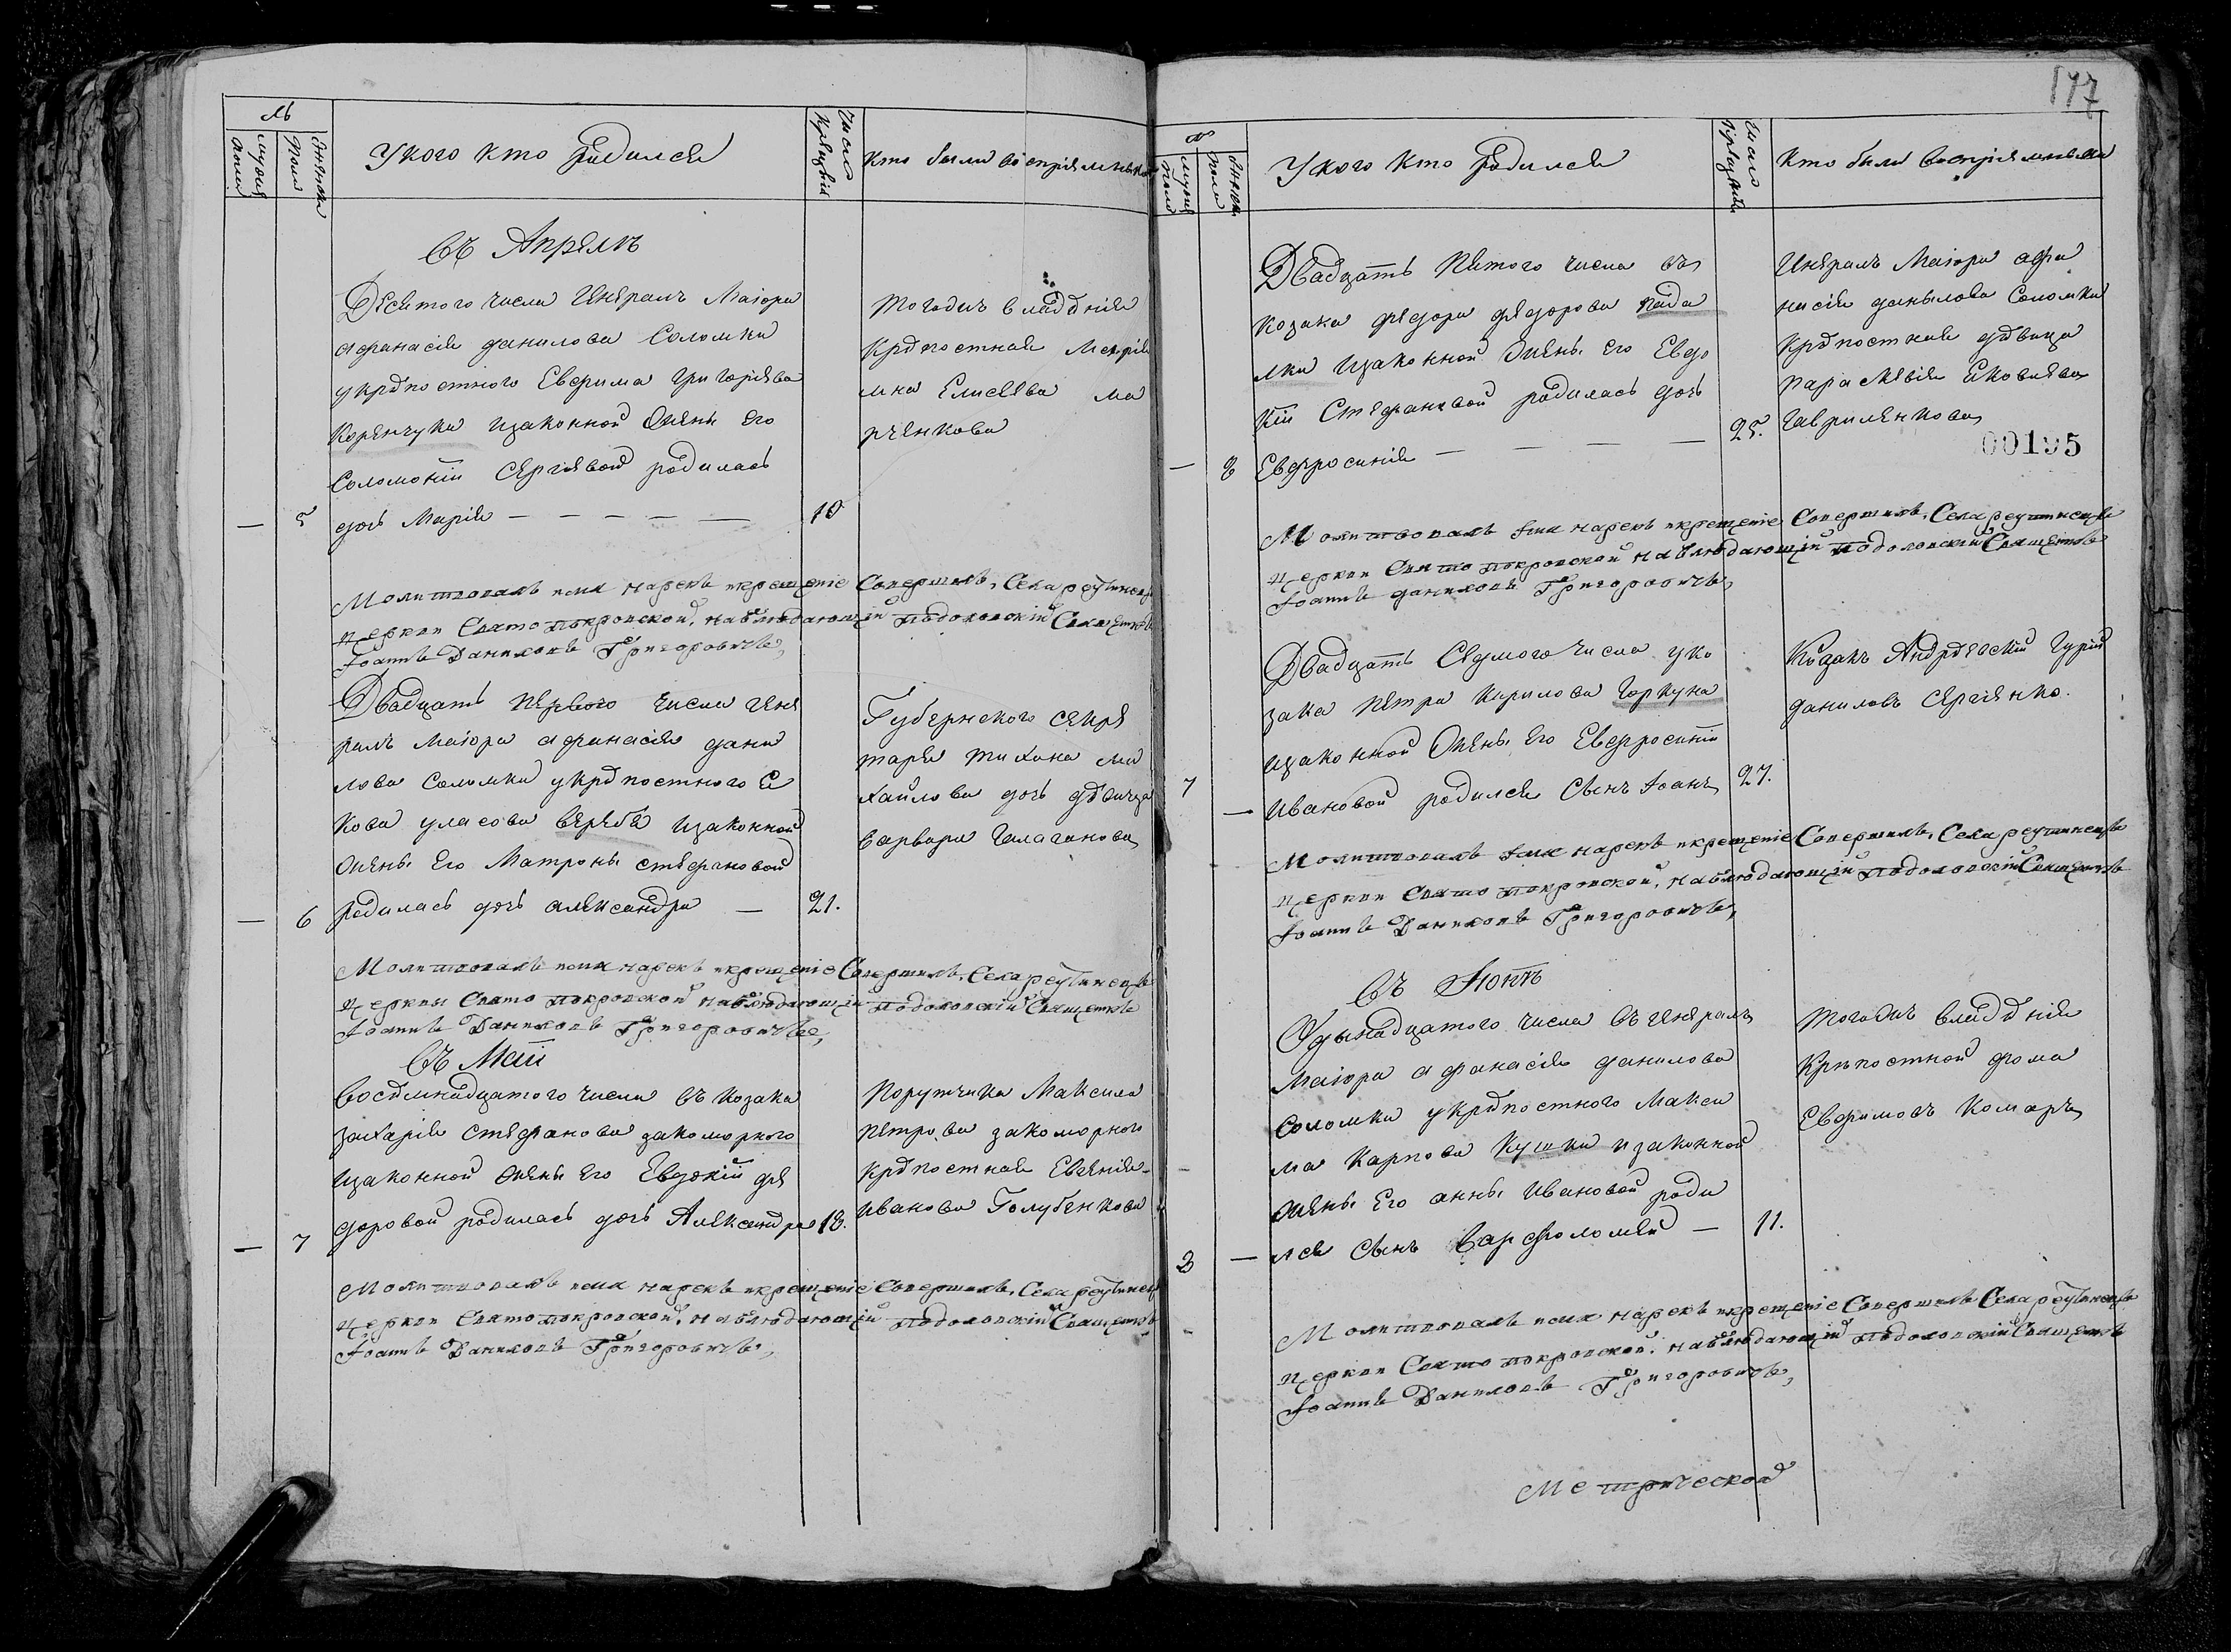 №
мужеска пола
женска пола
У кого кто родился
Число крещенія
Кто были воспріемники
Въ Апрелѣ
Десятого числа Генералъ Маіора
Афанасія Данилова Соломки
у крѣпостного Евфима Григоріева
Коренчука и законной жены его
Соломоніи Сергіевой родилась
— 5 дочь Марія — — — — — 10
Тогожъ владѣнія
крѣпостная Марія
мна Елисеева Ма
рченкова
Молитвовалъ имя нарекъ и крещеніе Совершилъ, Села реутинець
церкви Свято покровской, наблюдающій подоловскій Священикъ
Іоаннъ Даниловъ Григоровичъ,
Двадцать первого числа гене
ралъ Маіора Афанасія Дани
лова Соломки у крѣпостного Я
кова Уласова Вербы и законной
жены его Матроны Стефановой
— 6 родилась дочь Александра — 21.
Губернского секре
таря Тихона Ми
хайлова дочь дѣвица
Варвара Галаганова
Молитвовалъ имя нарекъ и крещеніе Совершилъ, Села реутинець
церкви Свято покровской наблюдающій подоловскій Священикъ
Іоаннъ Даниловъ Григоровичъ,
Въ Маіи
Восѣмнадцатого числа въ козака
Захарія Стефанова Закоморного
и законной жены его Евдокіи Фе
— 7 доровой родилась дочь Александра 18.
Порутчика Максима
Петрова Закоморного
крѣпостная Евгенія
Иванова Голубенкова
Молитвовалъ имя нарекъ и крещеніе Совершилъ, Села реутинець
церкви Свято покровской, наблюдающій подоловскій Священикъ
Іоаннъ Даниловъ Григоровичъ,
177
№
мужеска пола
женска пола
У кого кто родился
Число крещенія
Кто были воспріемники
Двадцать пятого числа въ
козака Федора Федорова Кида
лки и законной жены его Евдо
кіи Стефановой родилась дочь
— 8 Евфросинія — — — — 25.
Генералъ Маіора Афа
насія Данылова Соломки
крѣпостная дѣвица
Параскевія Яковлева
Гавриленкова
00195
Молитвовалъ имя нарекъ и крещеніе Совершилъ, Села реутинець
церкви Свято покровской наблюдающій подоловскій Священикъ
Іоаннъ Даниловъ Григоровичъ,
Двадцать Седмого числа у ко
зака Петра Кирилова Горкуна
и законной жены его Евфросиніи
7 — Ивановой родился Сынъ Іоанъ 27.
Козакъ Андрѣевскій Гурій
Даниловъ Сергіенко.
Молитвовалъ имя нарекъ и крещеніе Совершилъ, Села реутинець
церкви Свято покровской, наблюдающій подоловскій Священикъ
Іоаннъ Даниловъ Григоровичъ,
Въ Іюнѣ
Одынадцатого числа въ Генералъ
Маіора Афанасія Данилова
Соломки у крѣпостного Макси
ма Карпова Кушки и законной
жены его Анны Ивановой роди
8 — лся Сынъ Варфоломей — 11.
Тогожъ владѣнія
крѣпостной Фома
Евфимовъ Комаръ
Молитвовалъ имя нарекъ и крещеніе Совершилъ Села реутинець
церкви Свято покровской, наблюдающій подоловскій Священикъ
Іоаннъ Даниловъ Григоровичъ,
Метрической